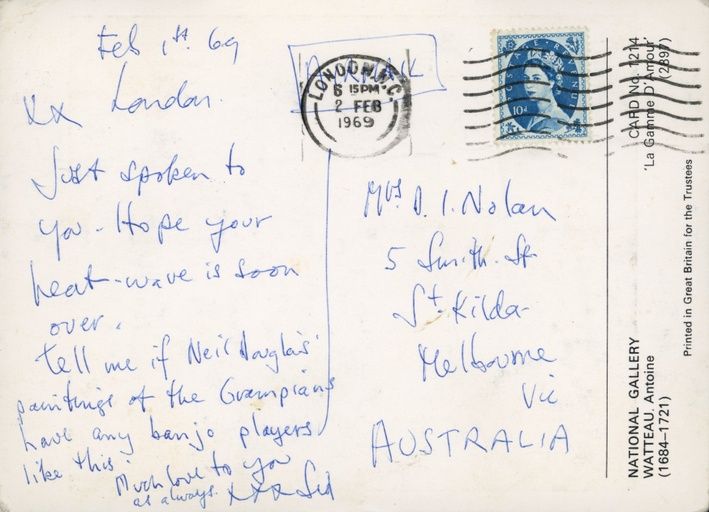 Feb 1st. 69
London.
xx
Just spoken to
you. Hope your
heat-wave is soon
over.
tell me if Neil Douglas'
paintings of the Grampians
have any banjo players
like this.
Much love to you
as always. xxx Sid
AIR MAIL
LONDON W.C.
6 15PM
2 FEB
1969
POSTAGE REVENUE
10d
Mrs. D. I. Nolan
5 Smith. St
St. Kilda
Melbourne
Vic
AUSTRALIA
CARD No. 1214
'La Gamme D'Amour'
(2897)
Printed in Great Britain for the Trustees
NATIONAL GALLERY
WATTEAU, Antoine
(1684–1721)